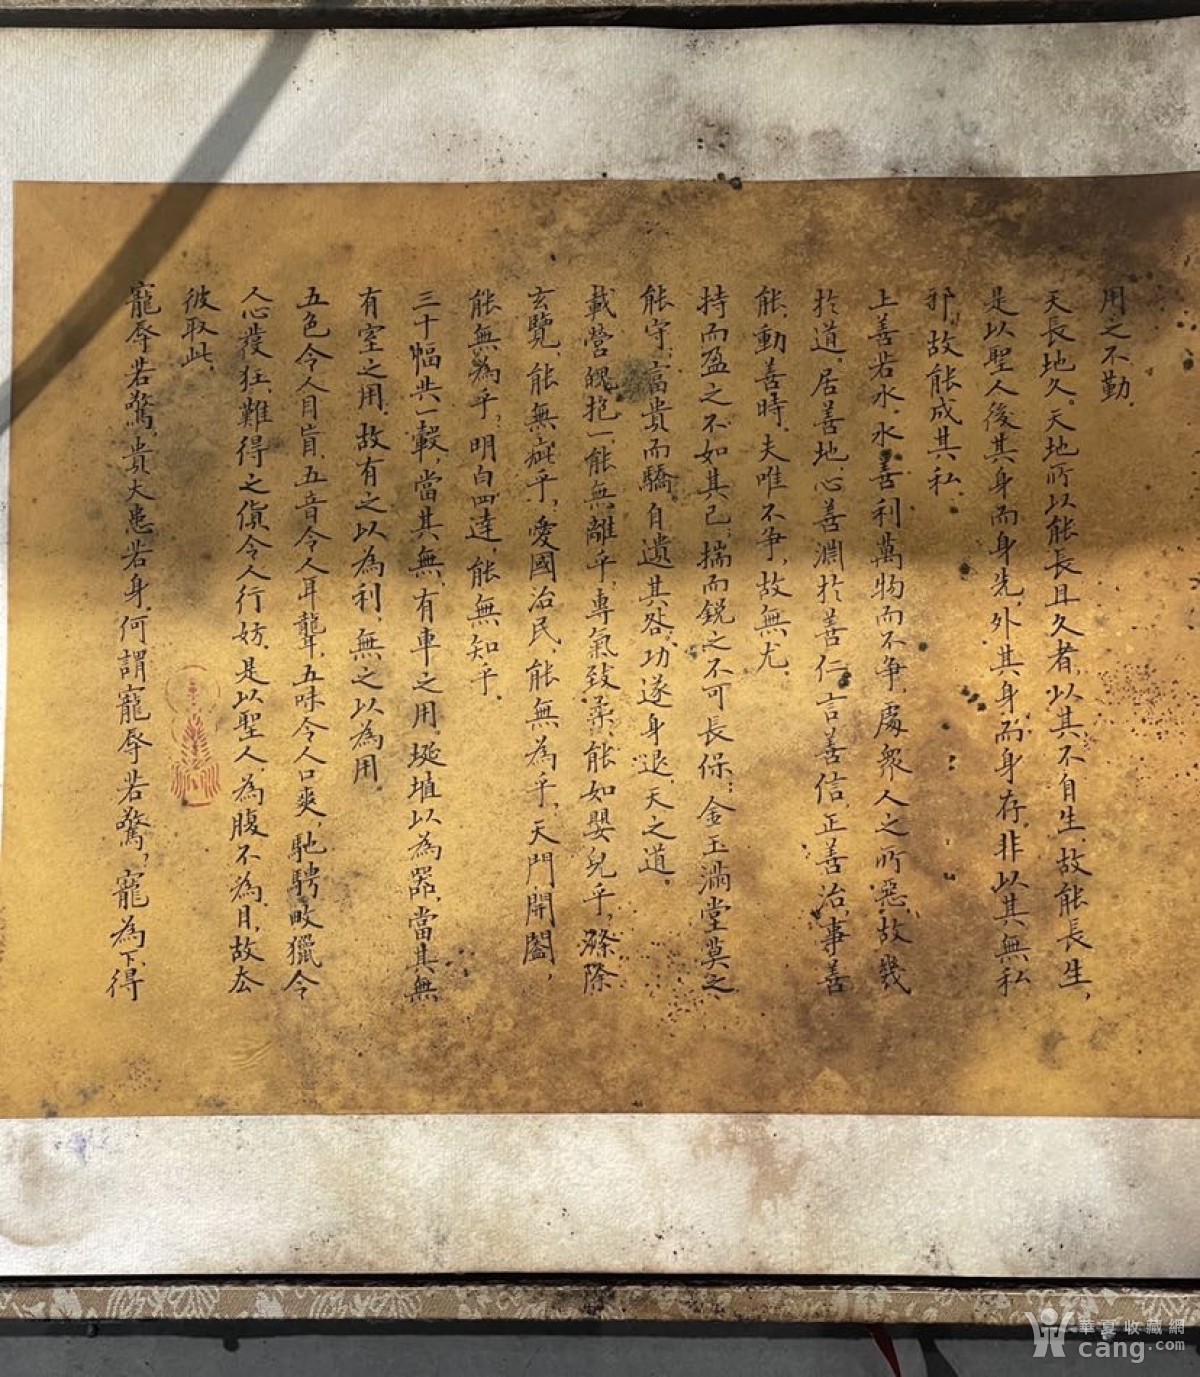 用之不勤．
天長地久。天地所以能長且久者，以其不自生，故能長生，
是以聖人後其身而身先，外其身而身存，非以其無私
邪，故能成其私．
上善若水．水善利萬物而不爭，處衆人之所惡，故幾
於道．居善地，心善淵，於善仁，言善信，正善治，事善
能，動善時．夫唯不爭，故無尤．
持而盈之不如其已，揣而銳之不可長保；金玉滿堂莫之
能守，富貴而驕自遺其咎．功遂身退，天之道．
載營魄抱一，能無離乎，專氣致柔，能如嬰兒乎，滌除
玄覽，能無疵乎，愛國治民，能無為乎，天門開闔，
能無為乎，明白四達，能無知乎．
三十幅共一轂，當其無，有車之用．埏埴以為器，當其無
有室之用．故有之以為利，無之以為用．
五色令人目盲，五音令人耳聾，五味令人口爽，馳騁畋獵令
人心發狂，難得之貨令人行妨．是以聖人為腹不為目，故去
彼取此．
寵辱若驚，貴大患若身．何謂寵辱若驚，寵為下，得
華夏收藏網
cang.com